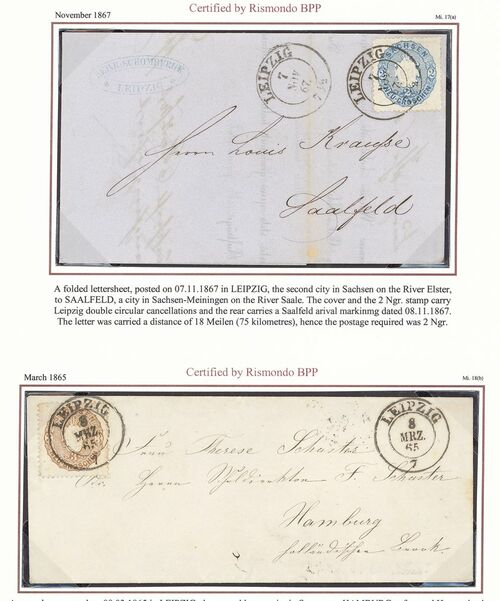 November 1867
Certified by Rismondo BPP
Mi. 17(a)
LEIPZIG
LEIPZIG
7
LEIPZIG
SACHSEN
Herrn Louis Krauße
Saalfeld
A folded lettersheet, posted on 07.11.1867 in LEIPZIG, the second city in Sachsen on the River Elster,
to SAALFELD, a city in Sachsen-Meiningen on the River Saale. The cover and the 2 Ngr. stamp carry
Leipzig double circular cancellations and the rear carries a Saalfeld arival markinmg dated 08.11.1867.
The letter was carried a distance of 18 Meilen (75 kilometres), hence the postage required was 2 Ngr.
March 1865
Certified by Rismondo BPP
Mi. 18(b)
LEIPZIG
8
MRZ.
65
7
LEIPZIG
8
MRZ.
65
7
Frau Therese Schuster
Herrn F. Schuster
Hamburg
holländischen Brook.